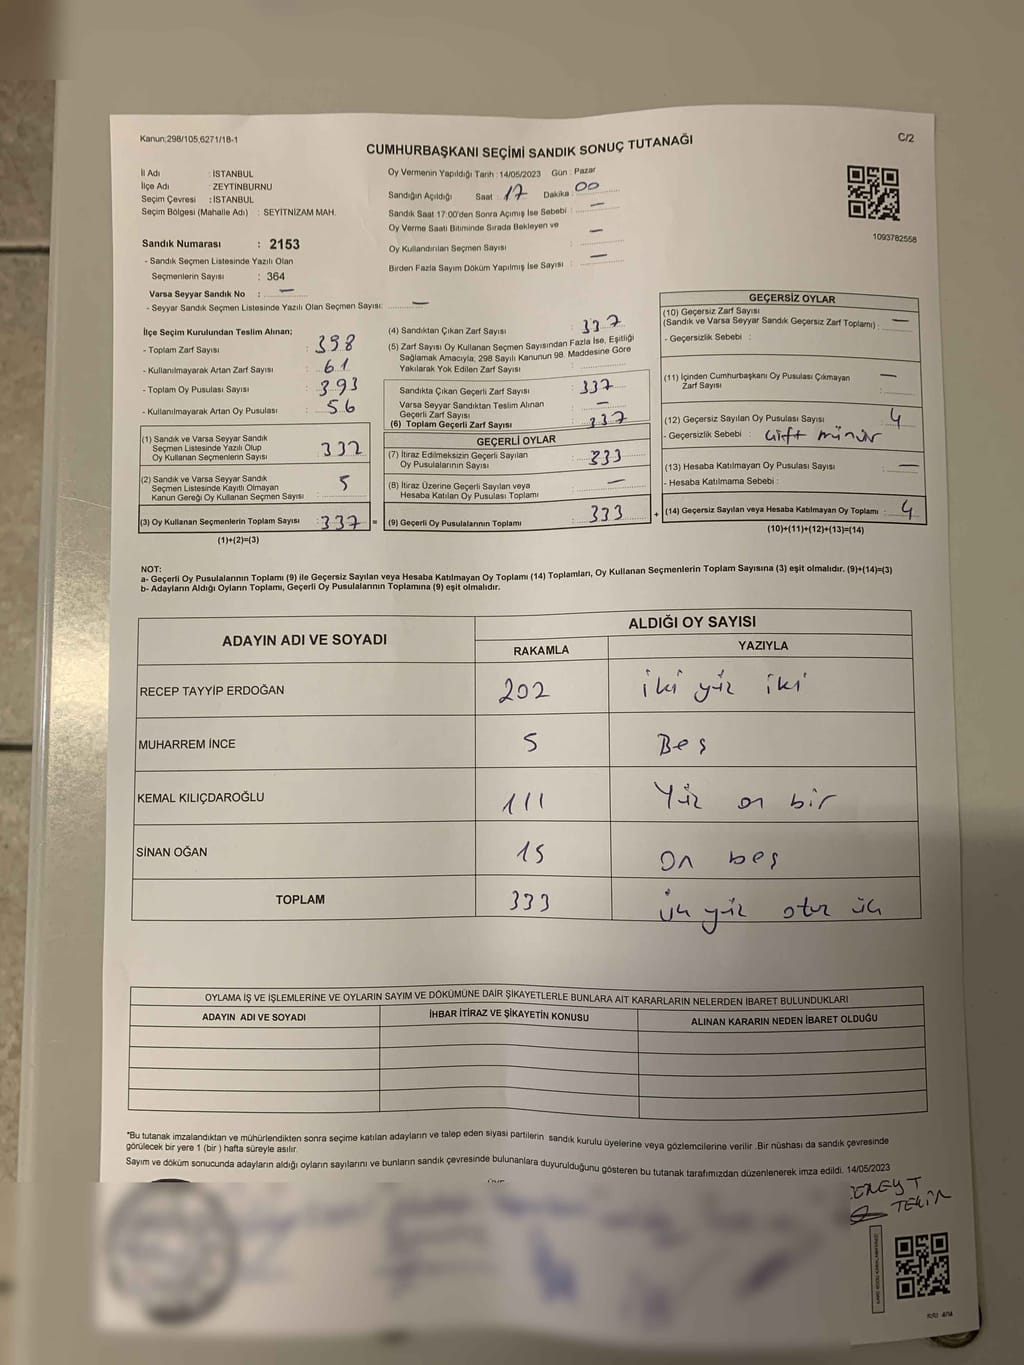 Kanun:298/105,6271/18-1
C/2
CUMHURBAŞKANI SEÇİMİ SANDIK SONUÇ TUTANAĞI
İl Adı : İSTANBUL
İlçe Adı : ZEYTİNBURNU
Seçim Çevresi : İSTANBUL
Seçim Bölgesi (Mahalle Adı) : SEYİTNİZAM MAH.
Sandık Numarası : 2153
- Sandık Seçmen Listesinde Yazılı Olan
Seçmenlerin Sayısı : 364
Varsa Seyyar Sandık No : —
- Seyyar Sandık Seçmen Listesinde Yazılı Olan Seçmen Sayısı: —
Oy Vermenin Yapıldığı Tarih : 14/05/2023 Gün : Pazar
Sandığın Açıldığı Saat : 17 Dakika : 00
Sandık Saat 17:00'den Sonra Açımış İse Sebebi : —
Oy Verme Saati Bitiminde Sırada Bekleyen ve
Oy Kullandırılan Seçmen Sayısı : —
Birden Fazla Sayım Döküm Yapılmış İse Sayısı : —
1093782558
İlçe Seçim Kurulundan Teslim Alınan;
- Toplam Zarf Sayısı : 398
- Kullanılmayarak Artan Zarf Sayısı : 61
- Toplam Oy Pusulası Sayısı : 393
- Kullanılmayarak Artan Oy Pusulası : 56
(1) Sandık ve Varsa Seyyar Sandık
Seçmen Listesinde Yazılı Olup
Oy Kullanan Seçmenlerin Sayısı : 332
(2) Sandık ve Varsa Seyyar Sandık
Seçmen Listesinde Kayıtlı Olmayan
Kanun Gereği Oy Kullanan Seçmen Sayısı : 5
(3) Oy Kullanan Seçmenlerin Toplam Sayısı : 337 =
(1)+(2)=(3)
(4) Sandıktan Çıkan Zarf Sayısı : 337
(5) Zarf Sayısı Oy Kullanan Seçmen Sayısından Fazla İse, Eşitliği
Sağlamak Amacıyla; 298 Sayılı Kanunun 98. Maddesine Göre
Yakılarak Yok Edilen Zarf Sayısı :
Sandıkta Çıkan Geçerli Zarf Sayısı : 337
Varsa Seyyar Sandıktan Teslim Alınan
Geçerli Zarf Sayısı : —
(6) Toplam Geçerli Zarf Sayısı : 337
GEÇERLİ OYLAR
(7) İtiraz Edilmeksizin Geçerli Sayılan
Oy Pusulalarının Sayısı : 333
(8) İtiraz Üzerine Geçerli Sayılan veya
Hesaba Katılan Oy Pusulası Toplamı : —
(9) Geçerli Oy Pusulalarının Toplamı : 333 +
GEÇERSİZ OYLAR
(10) Geçersiz Zarf Sayısı
(Sandık ve Varsa Seyyar Sandık Geçersiz Zarf Toplamı) : —
- Geçersizlik Sebebi :
(11) İçinden Cumhurbaşkanı Oy Pusulası Çıkmayan
Zarf Sayısı : —
(12) Geçersiz Sayılan Oy Pusulası Sayısı : 4
- Geçersizlik Sebebi : Çift mühür
(13) Hesaba Katılmayan Oy Pusulası Sayısı : —
- Hesaba Katılmama Sebebi :
(14) Geçersiz Sayılan veya Hesaba Katılmayan Oy Toplamı : 4
(10)+(11)+(12)+(13)=(14)
NOT:
a- Geçerli Oy Pusulalarının Toplamı (9) ile Geçersiz Sayılan veya Hesaba Katılmayan Oy Toplamı (14) Toplamları, Oy Kullanan Seçmenlerin Toplam Sayısına (3) eşit olmalıdır. (9)+(14)=(3)
b- Adayların Aldığı Oyların Toplamı, Geçerli Oy Pusulalarının Toplamına (9) eşit olmalıdır.
ADAYIN ADI VE SOYADI ALDIĞI OY SAYISI
RAKAMLA YAZIYLA
RECEP TAYYİP ERDOĞAN 202 iki yüz iki
MUHARREM İNCE 5 Beş
KEMAL KILIÇDAROĞLU 111 Yüz on bir
SİNAN OĞAN 15 on beş
TOPLAM 333 üç yüz otuz üç
OYLAMA İŞ VE İŞLEMLERİNE VE OYLARIN SAYIM VE DÖKÜMÜNE DAİR ŞİKAYETLERLE BUNLARA AİT KARARLARIN NELERDEN İBARET BULUNDUKLARI
ADAYIN ADI VE SOYADI İHBAR İTİRAZ VE ŞİKAYETİN KONUSU ALINAN KARARIN NEDEN İBARET OLDUĞU
*Bu tutanak imzalandıktan ve mühürlendikten sonra seçime katılan adayların ve talep eden siyasi partilerin sandık kurulu üyelerine veya gözlemcilerine verilir .Bir nüshası da sandık çevresinde
görülecek bir yere 1 (bir ) hafta süreyle asılır.
Sayım ve döküm sonucunda adayların aldığı oyların sayılarını ve bunların sandık çevresinde bulunanlara duyurulduğunu gösteren bu tutanak tarafımızdan düzenlenerek imza edildi. 14/05/2023
TEKİN